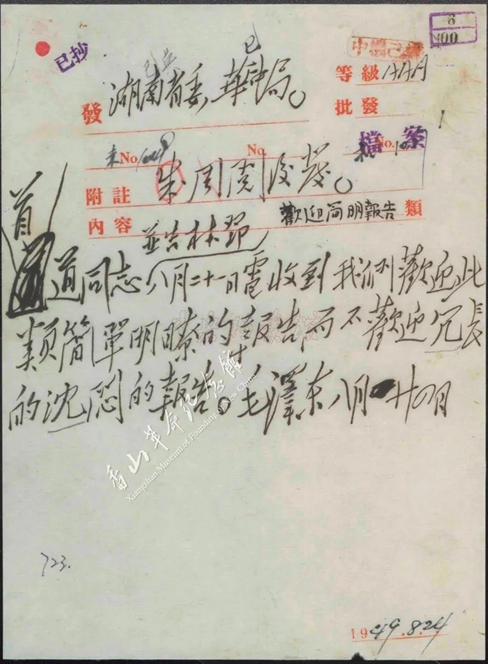 已抄
中機己
6
100
發 湖南省委，華中局。
等級 AAAA
批發
No.
No.
No.
檔案
附註 朱周閱後發。
內容 並告林鄧 歡迎簡明報告 類
首道同志八月二十一日電收到我們歡迎此
類簡單明瞭的報告而不歡迎冗長
的沈悶的報告。毛澤東八月廿四日
香山革命紀念館
Xiangshan Museum of Founding
723.
1949.8.24